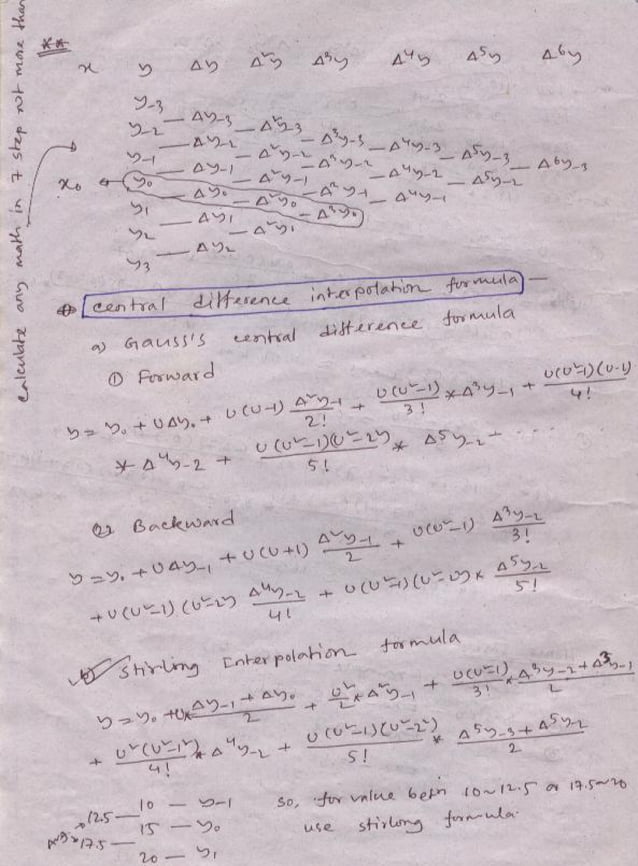 **
calculate any math in 7 step not more than
x y Δy Δ²y Δ³y Δ⁴y Δ⁵y Δ⁶y
y-3
y-2 — Δy-3 — Δ²y-3
y-1 — Δy-2 — Δ²y-2 — Δ³y-3 — Δ⁴y-3
x₀ ← y₀ — Δy-1 — Δ²y-1 — Δ³y-2 — Δ⁴y-2 — Δ⁵y-3 — Δ⁶y-3
y₁ — Δy₀ — Δ²y₀ — Δ³y-1 — Δ⁴y-1 — Δ⁵y-2
y₂ — Δy₁ — Δ²y₁ — Δ³y₀
y₃ — Δy₂
central difference interpolation formula —
a) Gauss's central difference formula
① Forward
y = y₀ + UΔy₀ + U(U-1) Δ²y-1/2! + U(U²-1)/3! * Δ³y-1 + U(U²-1)(U-2)/4!
* Δ⁴y-2 + U(U²-1)(U²-2²)/5! * Δ⁵y-2 + ....
② Backward
y = y₀ + UΔy-1 + U(U+1) Δ²y-1/2 + U(U²-1) Δ³y-2/3!
+ U(U²-1)(U²-2) Δ⁴y-2/4! + U(U²-1)(U²-2)* Δ⁵y-2/5!
b) Stirling Interpolation formula
y = y₀ + U* Δy-1 + Δy₀/2 + U²/2 * Δ²y-1 + U(U²-1)/3! * Δ³y-2 + Δ³y-1/2
+ U²(U²-1²)/4! * Δ⁴y-2 + U(U²-1)(U²-2²)/5! * Δ⁵y-3 + Δ⁵y-2/2
10 — y-1 so, for value betn 10~12.5 or 17.5~20
12.5 — 15 — y₀ use stirlong formula.
avg 17.5 —
20 — y₁